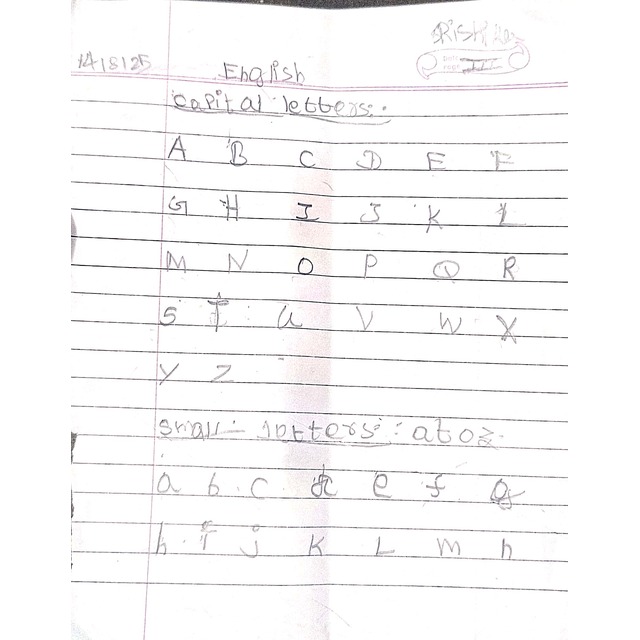 14/8/25
English
capital letters:
A B C D E F
G H I J K L
M N O P Q R
S T U V W X
Y Z
small letters: a to z
a b c d e f g
h i j k L m n